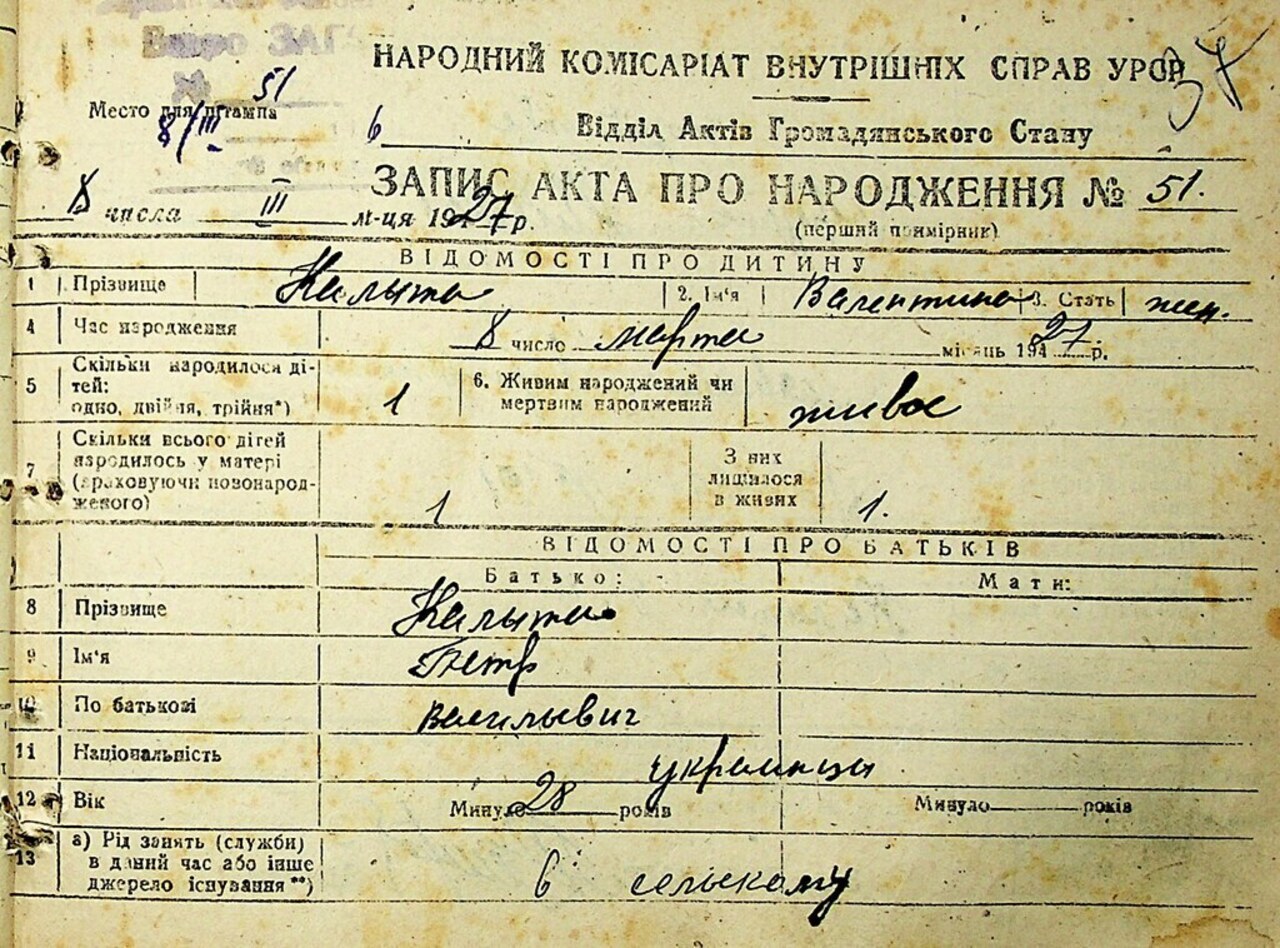 Бюро ЗАГ
НАРОДНИЙ КОМІСАРІАТ ВНУТРІШНІХ СПРАВ УРСР
37
51
Место для штампа
8/III
6 Відділ Актів Громадянського Стану
ЗАПИС АКТА ПРО НАРОДЖЕННЯ № 51.
8 числа III м-ця 1927 р.
(перший примірник)
ВІДОМОСТІ ПРО ДИТИНУ
1 Прізвище Калыта 2. Ім'я Валентина 3. Стать жен.
4 Час народження 8 число марта місяць 194 27 р.
5 Скільки народилося ді-
тей:
одно, двійня, трійня*) 1 6. Живим народжений чи
мертвим народжений живое
7 Скільки всього дітей
народилось у матері
(враховуючи новонарод-
женого) 1 З них
лишилося
в живих 1.
ВІДОМОСТІ ПРО БАТЬКІВ
Батько: Мати:
8 Прізвище Калыта
9 Ім'я Петр
10 По батькові Васильевич
11 Національність украинцы
12 Вік Минуло 28 років Минуло років
13 а) Рід занять (служби)
в даний час або інше
джерело існування **) сельскому